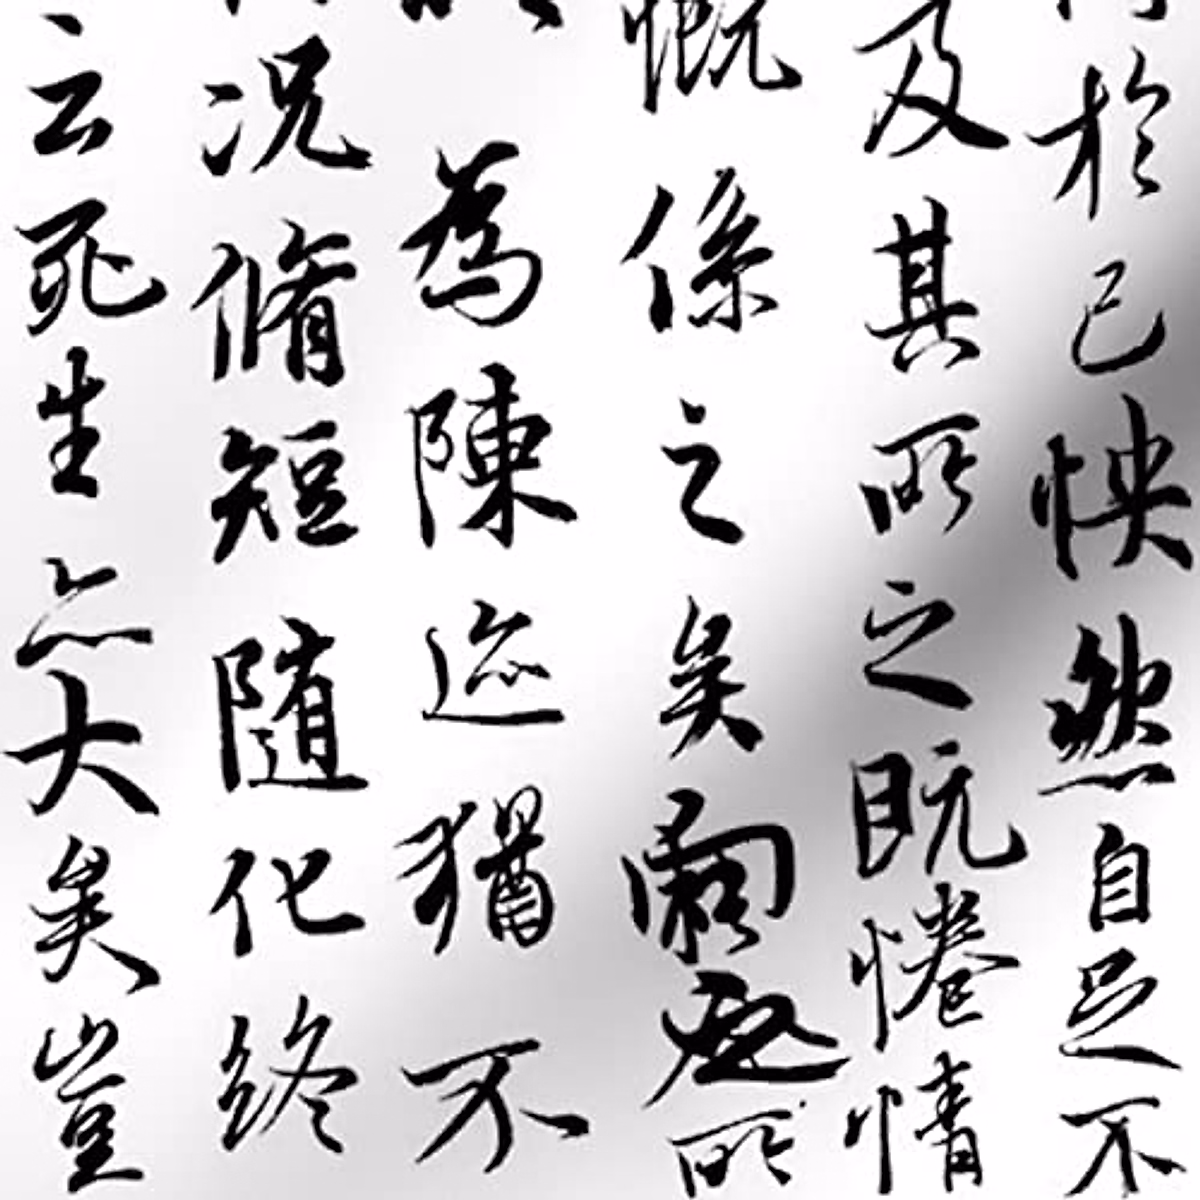 於己怏然自足不
及其所之既惓情
慨係之矣向之所
為陳迹猶不
况脩短隨化終
云死生亦大矣豈